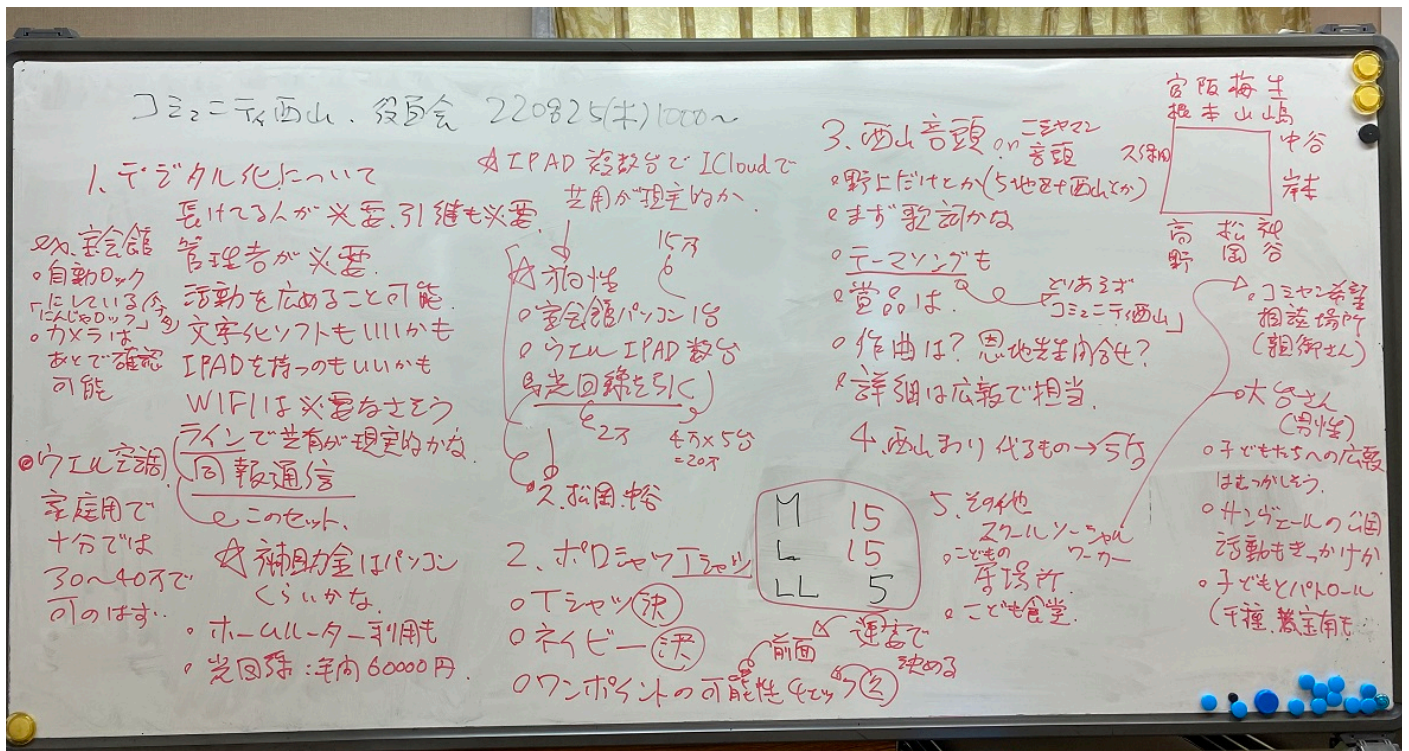 コミュニティ西山.役員会 220825(木)1000〜
1.デジタル化について
長けてる人が必要.引継も必要.
管理者が必要.
活動を広めること可能.
文字化ソフトもいいかも
IPADを持つのもいいかも
WIFIは必要なさそう
ラインで共有が現実的かな.
同報通信
このセット.
☆補助金はパソコン
くらいかな.
・ホームルーター利用も
・光回線:年間60000円.
ex.宝会館
・自動ロック
にしている(今
「にんじゃロック」
・カメラは
あとで確認
可能
・ウエル空調.
家庭用で
十分では
30〜40万で
可のはず.
☆IPAD複数台でICloudで
共用が現実的か.
☆方向性
15万
○宝会館パソコン1台
○ウエルIPAD数台
光回線を引く
2万
4万×5台
=20万
久.松岡.中谷
2.ポロシャツTシャツ
○Tシャツ決
○ネイビー決
○ワンポイントの可能性
前面
運委で
決める
M 15
L 15
LL 5
3.西山音頭or ニシヤマン
音頭
・野上だけとか(5地区+西山とか)
・まず歌詞かな
・テーマソングも
・賞品は.
とりあえず
「コミュニティ西山」
・作曲は?恩地先生問合せ?
・詳細は広報で担当.
4.西山まつり代るもの→
5.その他
スクールソーシャル
ワーカー
・こどもの
居場所.
・こども食堂.
宮阪梅生
根本山嶋
久保田
中谷
岸本
高松神
野岡谷
・コミヤン希望
相談場所
(親御さん)
大谷さん
(男性)
○子どもたちへの広報
はむつかしそう.
○サンヴェールの公園
活動もきっかけか.
○子どもとパトロール